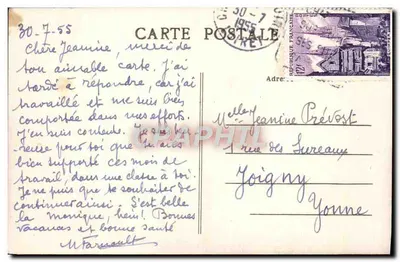 30-7-55
CARTE POSTALE
30-7
1955
REPUBLIQUE FRANÇAISE
12F
Chère Jeannine, merci de
ton aimable carte. J'ai
tardé à répondre, car j'ai
travaillé et me suis bien
comportée dans mes efforts.
J'en suis contente.
reuse pour toi que tu aies
bien supporté ces mois de
travail, dans une classe à toi.
Je ne puis que te souhaiter de
continuer ainsi. S'est belle
la monique, hein! Bonnes
vacances et bonne santé
Adre
Melle Jeanine Prévost
1 rue des Sureaux
Joigny
Yonne